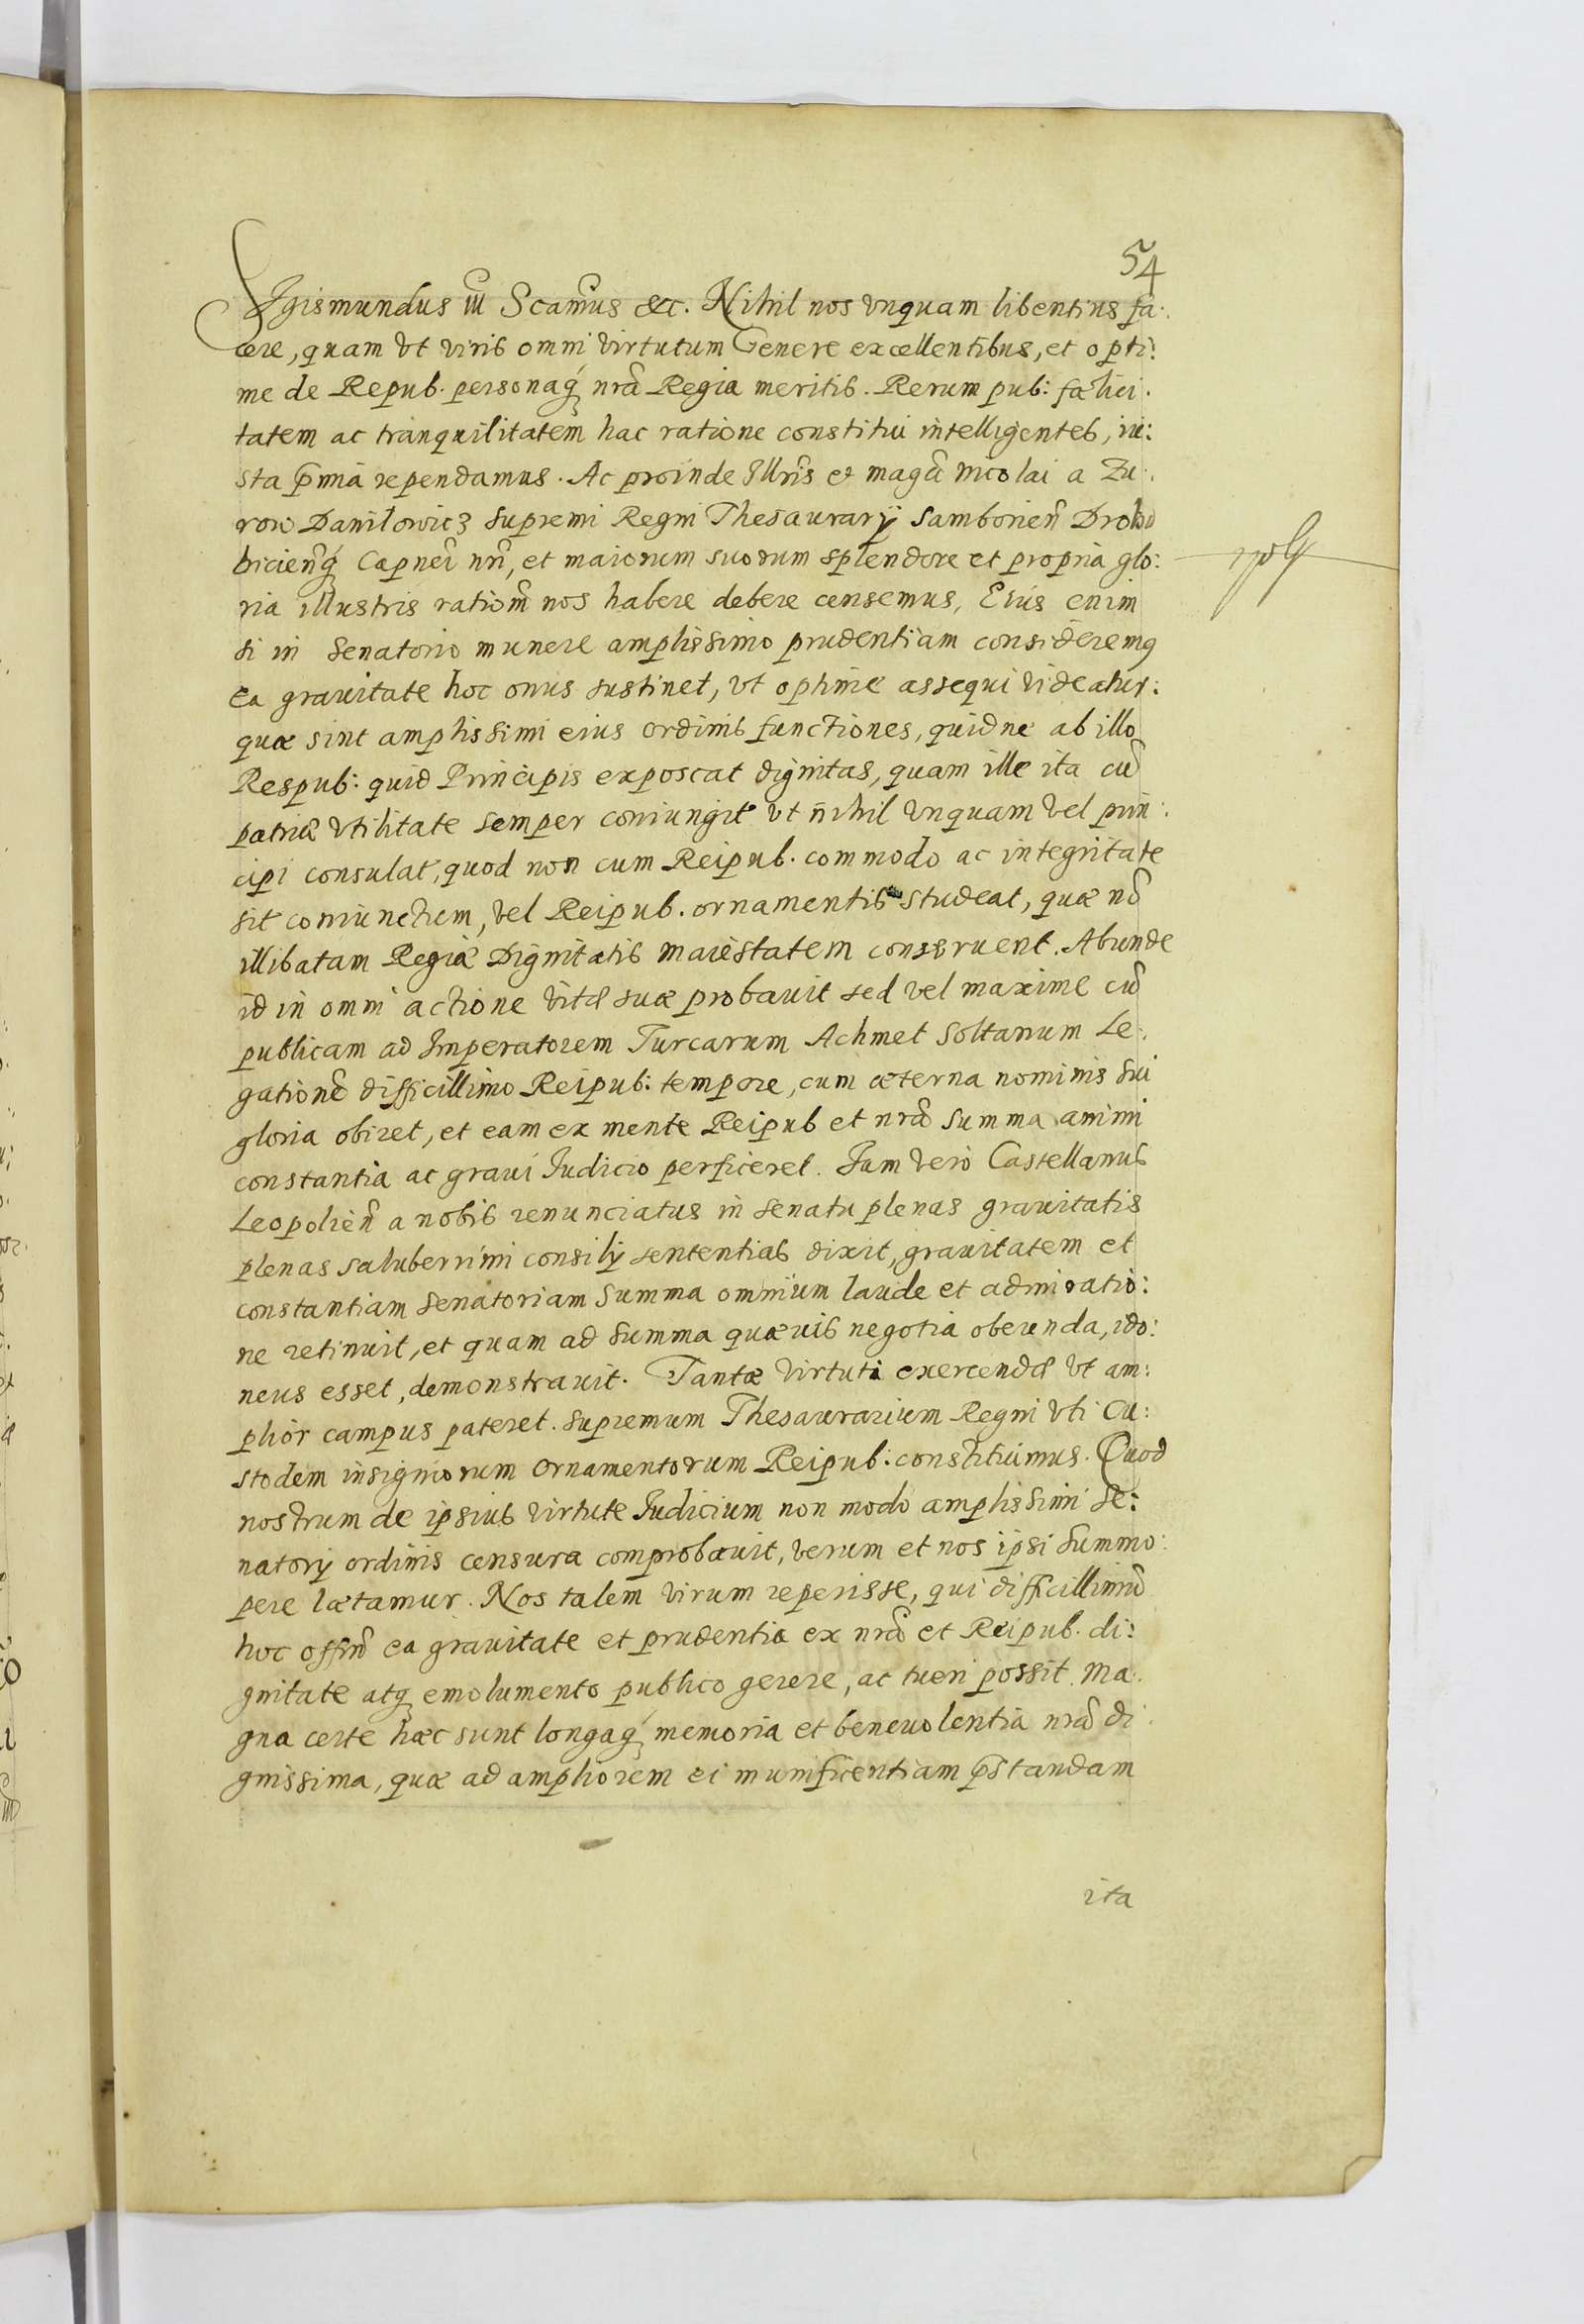 54
Sigismundus III Dei gra &c. Nihil nos vnquam libentius fa:
cere, quam vt viris omni virtutum Genere excellentibus, et opti:
me de Repub. personaq́ nrã Regia meritis. Rerum pub: fælici:
tatem ac tranquilitatem hac ratione constitui intelligentes, iu:
sta p̃mia rependamus. Ac proinde Illris et magci Nicolai a Zu:
row Daniłowicz supremi Regni Thesaurarÿ Samborien̄ Droho
bicien̄q́ Capnei nri, et maiorum suorum splendore et propria glo:
ria illustris rationẽ nos habere debere censemus, Eius enim
si in Senatorio munere amplissimo prudentiam consideremꝰ
ea grauitate hoc onus sustinet, vt optime assequi videatur:
quæ sint amplissimi eius ordinis functiones, quidne ab illo
Respub: quid Principis exposcat dignitas, quam ille ita cũ
patriæ vtilitate semper coniungit vt nihil vnquam vel prin:
cipi consulat, quod non cum Reipub. commodo ac integritate
sit coniunctum, vel Reipub. ornamentis studeat, quæ nõ
illibatam Regiæ Dignitatis maiestatem conseruent. Abunde
id in omni actione vitæ suæ probauit sed vel maxime cũ
publicam ad Imperatorem Turcarum Achmet Soltanum Le:
gationẽ difficillimo Reipub: tempore, cum æterna nominis sui
gloria obiret, et eam ex mente Reipub et nrã summa animi
constantia ac graui Iudicio perficeret. Iam vero Castellanus
Leopolien̄ a nobis renunciatus in senatu plenas grauitatis
plenas saluberrimi consilÿ sententias dixit, grauitatem et
constantiam senatoriam summa omnium laude et admiratio:
ne retinuit, et quam ad summa quæuis negotia obeunda, ido:
neus esset, demonstrauit. Tantæ virtuti exercendæ vt am:
plior campus pateret. supremum Thesaurarium Regni vti Cu:
stodem insigniorum ornamentorum Reipub: constituimus. Quod
nostrum de ipsius virtute Iudicium non modo amplissimi Se:
natorÿ ordinis censura comprobauit, verum et nos ipsi summo:
pere lætamur. Nos talem virum reperisse, qui difficillimũ
hoc offm̃ ea grauitate et prudentia ex nrã et Reipub. di:
gnitate atq́ emolumento publico gerere, ac tueri possit. Ma:
gna certe hæc sunt longaq́ memoria et beneuolentia nrã di:
gnissima, quæ ad ampliorem ei munificentiam p̃standam
ita